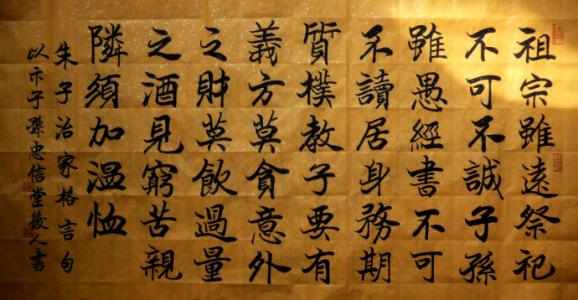 祖宗雖遠祭祀
不可不誠子孫
雖愚經書不可
不讀居身務期
質樸教子要有
義方莫貪意外
之財莫飲過量
之酒見窮苦親
隣須加溫恤
朱子治家格言句
以示子孫忠信堂後人書